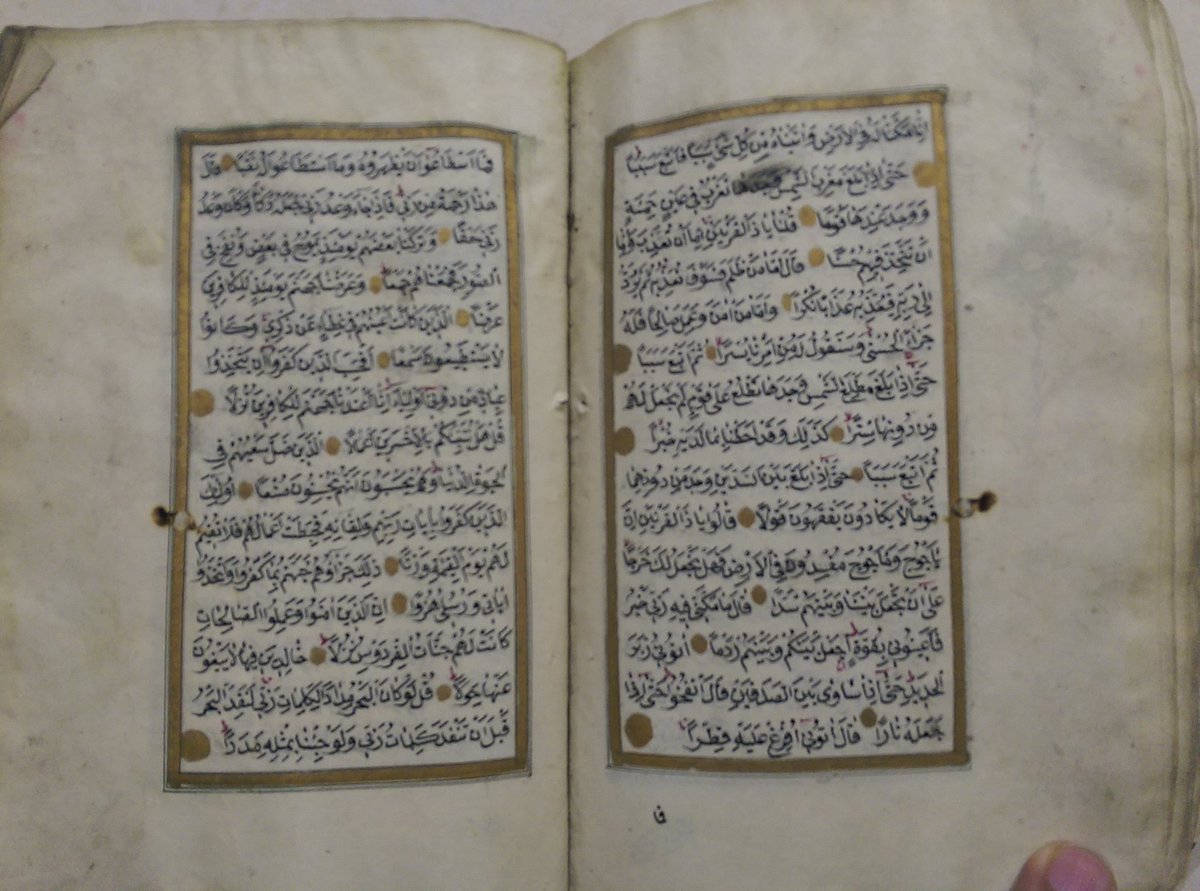 انا مكنا له في الارض واتيناه من كل شئ سببا فاتبع سببا
حتى اذا بلغ مغرب الشمس وجدها تغرب في عين حمئة
ووجد عندها قوما قلنا يا ذا القرنين اما ان تعذب واما
ان تتخذ فيهم حسنا قال اما من ظلم فسوف نعذبه ثم يرد
الى ربه فيعذبه عذابا نكرا واما من امن وعمل صالحا فله
جزاء الحسنى وسنقول له من امرنا يسرا ثم اتبع سببا
حتى اذا بلغ مطلع الشمس وجدها تطلع على قوم لم نجعل لهم
من دونها سترا كذلك وقد احطنا بما لديه خبرا
ثم اتبع سببا حتى اذا بلغ بين السدين وجد من دونهما
قوما لا يكادون يفقهون قولا قالوا يا ذا القرنين ان
ياجوج وماجوج مفسدون في الارض فهل نجعل لك خرجا
على ان تجعل بيننا وبينهم سدا قال ما مكني فيه ربي خير
فاعينوني بقوة اجعل بينكم وبينهم ردما اتوني زبر
الحديد حتى اذا ساوى بين الصدفين قال انفخوا حتى اذا
جعله نارا قال اتوني افرغ عليه قطرا
فا
فما اسطاعوا ان يظهروه وما استطاعوا له نقبا قال
هذا رحمة من ربي فاذا جاء وعد ربي جعله دكاء وكان وعد
ربي حقا وتركنا بعضهم يومئذ يموج في بعض ونفخ في
الصور فجمعناهم جمعا وعرضنا جهنم يومئذ للكافرين
عرضا الذين كانت اعينهم في غطاء عن ذكري وكانوا
لا يستطيعون سمعا افحسب الذين كفروا ان يتخذوا
عبادي من دوني اولياء انا اعتدنا جهنم للكافرين نزلا
قل هل ننبئكم بالاخسرين اعمالا الذين ضل سعيهم في
الحيوة الدنيا وهم يحسبون انهم يحسنون صنعا اولئك
الذين كفروا بايات ربهم ولقائه فحبطت اعمالهم فلا نقيم
لهم يوم القيمة وزنا ذلك جزاؤهم جهنم بما كفروا واتخذوا
اياتي ورسلي هزوا ان الذين امنوا وعملوا الصالحات
كانت لهم جنات الفردوس نزلا خالدين فيها لا يبغون
عنها حولا قل لو كان البحر مدادا لكلمات ربي لنفد البحر
قبل ان تنفد كلمات ربي ولو جئنا بمثله مددا